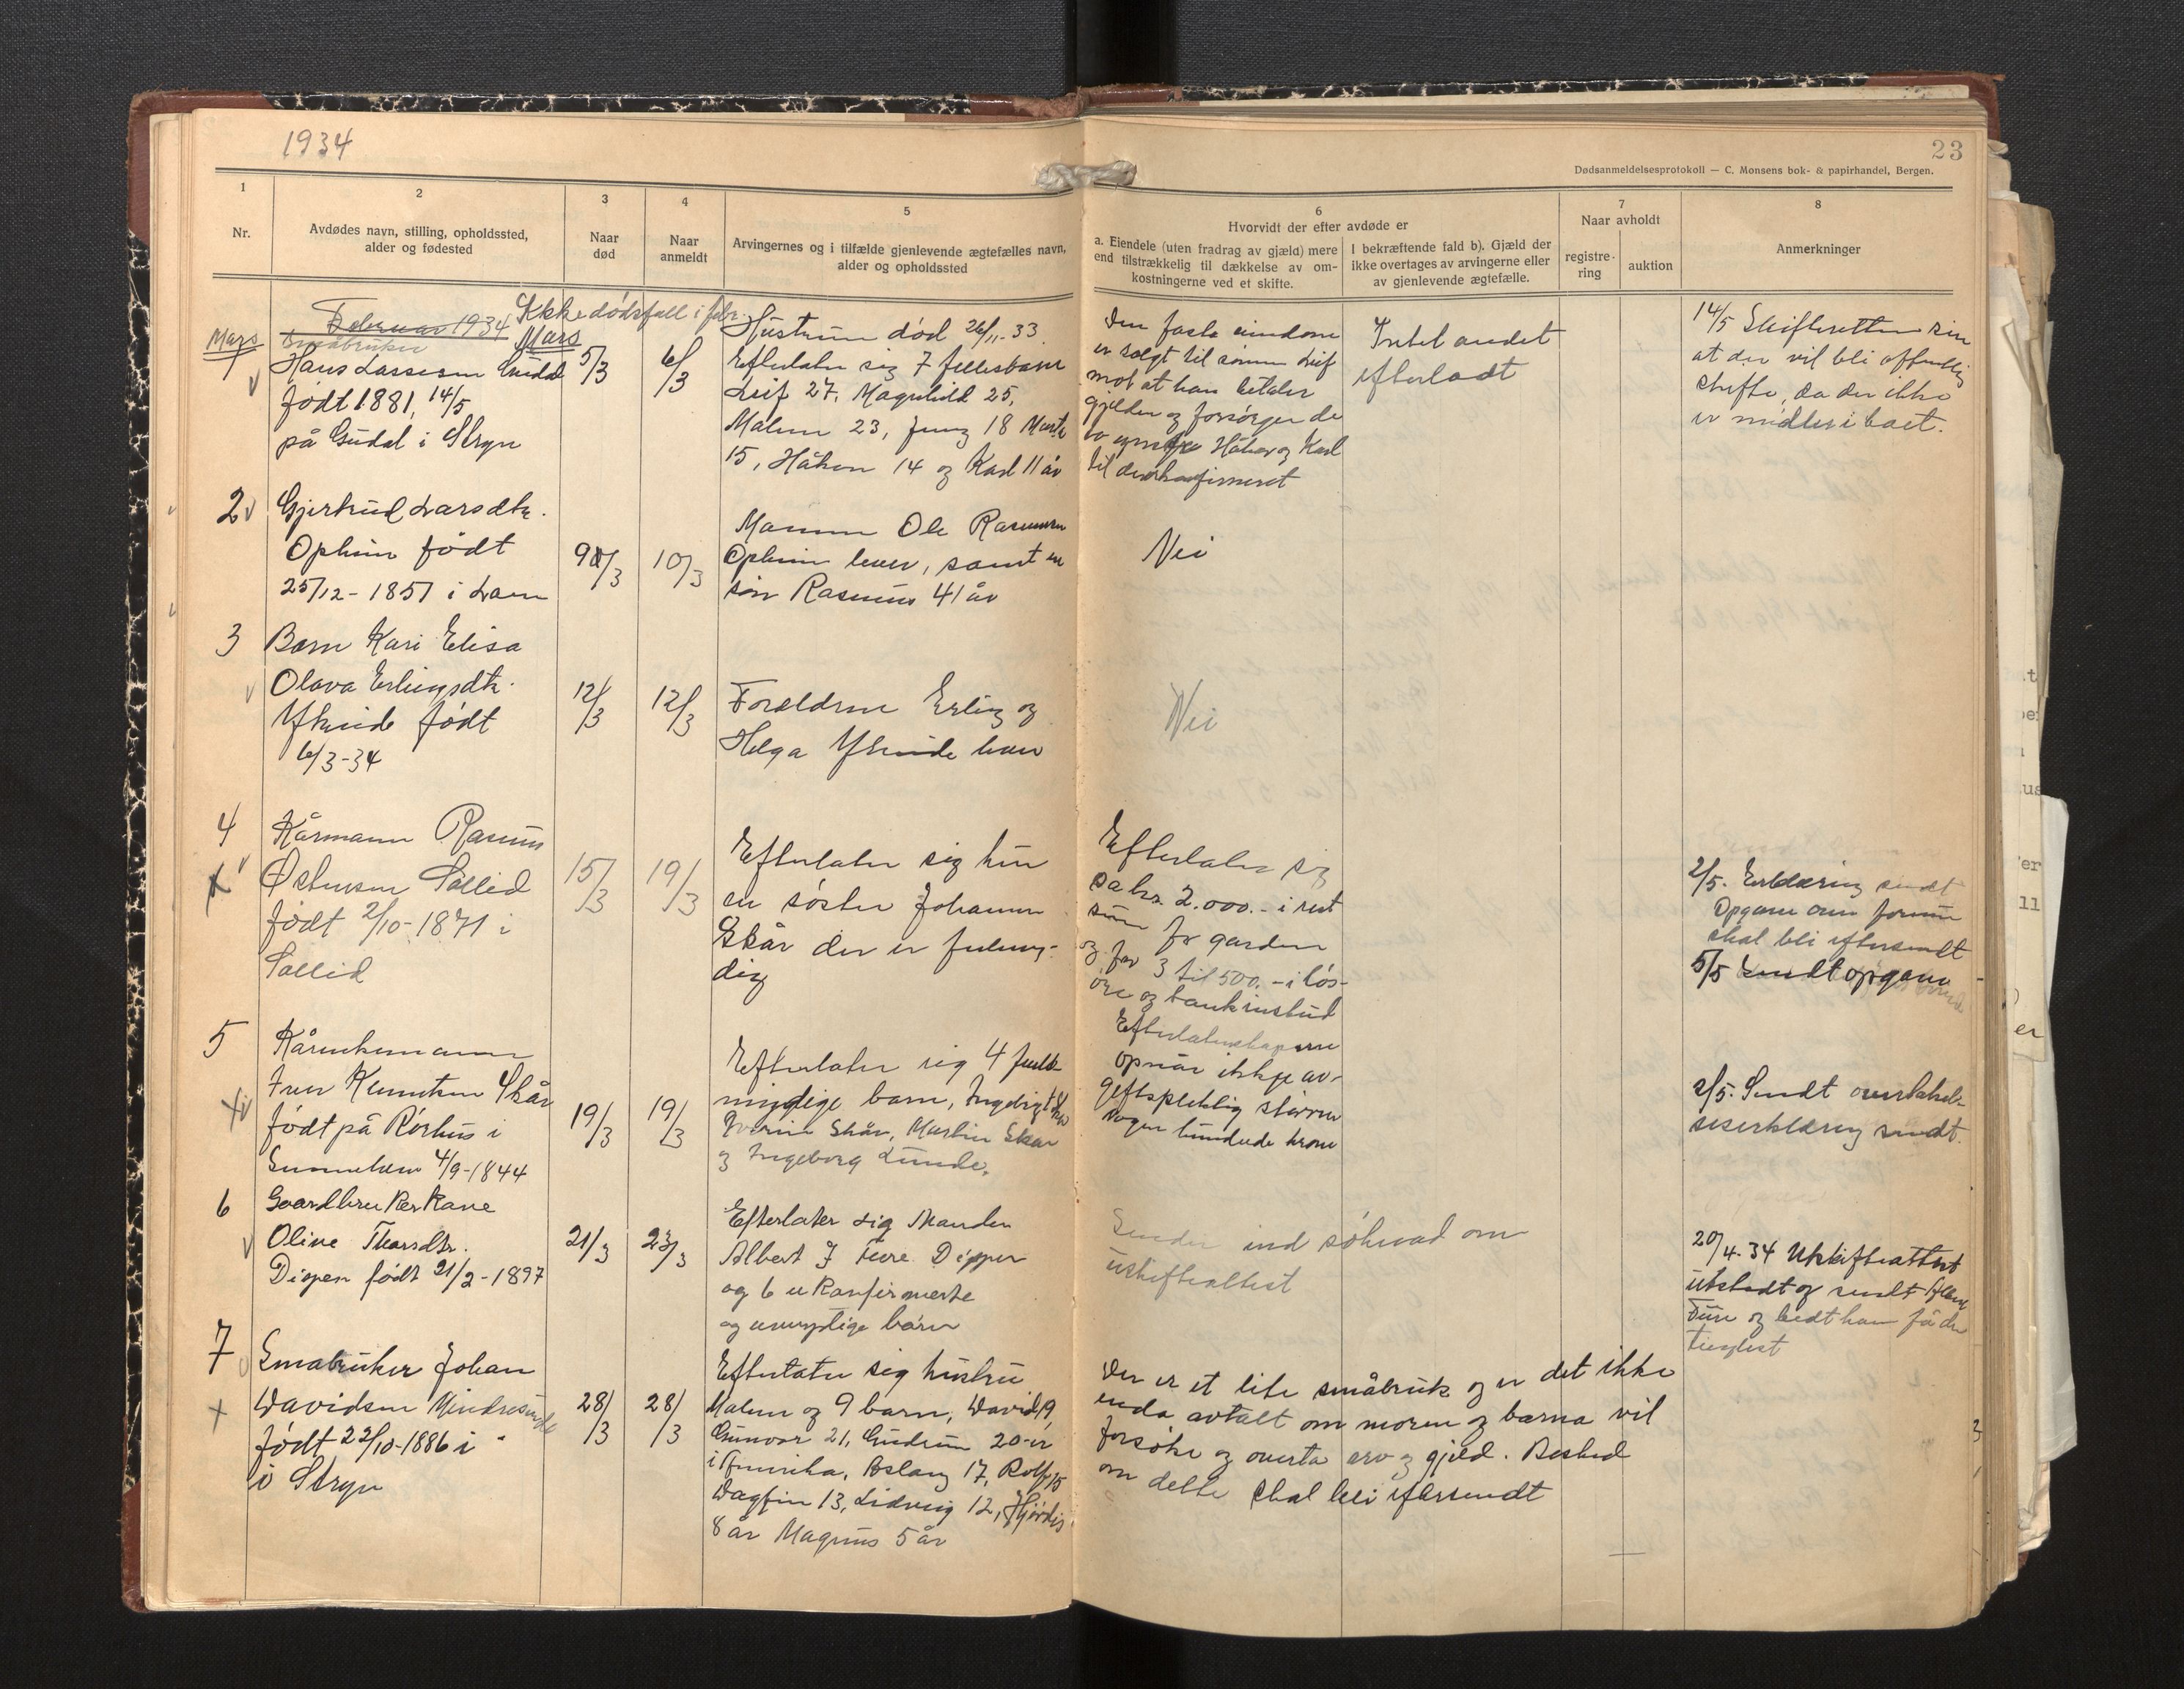 1934
23
Dødsanmeldelsesprotokoll — C. Monsens bok- & papirhandel, Bergen.
1
Nr.
2
Avdødes navn, stilling, opholdssted,
alder og fødested
3
Naar
død
4
Naar
anmeldt
5
Arvingernes og i tilfælde gjenlevende ægtefælles navn,
alder og opholdssted
6
Hvorvidt der efter avdøde er
a. Eiendele (uten fradrag av gjæld) mere
end tilstrækkelig til dækkelse av om-
kostningerne ved et skifte.
I bekræftende fald b). Gjæld der
ikke overtages av arvingerne eller
av gjenlevende ægtefælle.
7
Naar avholdt
registre-
ring
auktion
8
Anmerkninger
Februar 1934 Ikke dödsfall i febr.
Mars
Mars
1
Småbruker
Hans Lassesen
födt 1881, 14/5
på Gudal i Stryn
5/3
6/3
Hustruen död 26/11-33.
Efterlater sig 7 fellesbarn
Leif 27, Magnhild 25,
Malene 23, Jenny 18
15, Håkon 14 og Karl 11 år
Den faste eiendom
er solgt til sönnen Leif
mot at han betaler
gjelden og forsörger de
to yngste Håkon og Karl
til de er konfirmeret
Intet andet
efterladt
14/5 Skifteretten
at der vil bli offentlig
skifte, da der ikke
er midler i boet.
2
Gjertrud Larsdtr.
Opheim födt
25/12-1851 i
10/3
Mannen Ole Rasmussen
Opheim lever, samt en
sön Rasmus 41 år
Nei
3
Barn Kari Elisa
Olava Erlingsdtr.
födt
6/3-34
12/3
12/3
Foreldrene Erling og
Helga
Nei
4
Kårmann Rasmus
Östensen Sollid
födt 2/10-1871 i
Sollid
15/3
19/3
Efterlater sig kun
en söster Johanne
Skår der er fulmyn-
dig
Efterlater sig
ca kr. 2.000.- i rest
sum for garden
og for 3 til 500.- i lös-
öre og bankinskud
2/5. Erklæring sendt
Opgave over formue
skal bli eftersendt
5/5 Sendt opgave
5
Kårenkemann
Iver Knutsen Skår
födt på Rörhus i
4/9-1844
19/3
19/3
Efterlater sig 4 fuld-
myndige barn, Ingebrigt
Skår, Martin Skår
og Ingeborg Lunde.
Efterlatenskapene
opnår ikkje av-
giftspliktig större
nogen hundrede kroner
2/5. Sendt overtakel-
seserklæring sendt.
6
Gaardbrukerkone
Oline Thorsdtr.
födt 21/2-1897
21/3
23/3
Efterlater sig Manden
Albert J
og 6 ukonfirmerte
og umyndige börn
Sender ind söknad om
uskifteattest
20/4-34 Uskifteattest
utstedt og sendt Albert
og bedt ham få den
tinglest
7
Småbruker Johan
Davidsen Hindresunde
födt 22/10-1886 i
i Stryn
28/3
28/3
Efterlater sig hustru
Malene og 9 barn, David 19,
Gunvor 21, Gudrun 20-er
i Amerika, Aslaug 17, Rolf 15
Dagfin 13, Lidveig 12, Hjördis
8 år Magnus 5 år
Der er et lite småbruk og er det ikke
enda avtalt om moren og barna vil
forsöke og overta arv og gjeld. Beskjed
om dette skal bli eftersendt